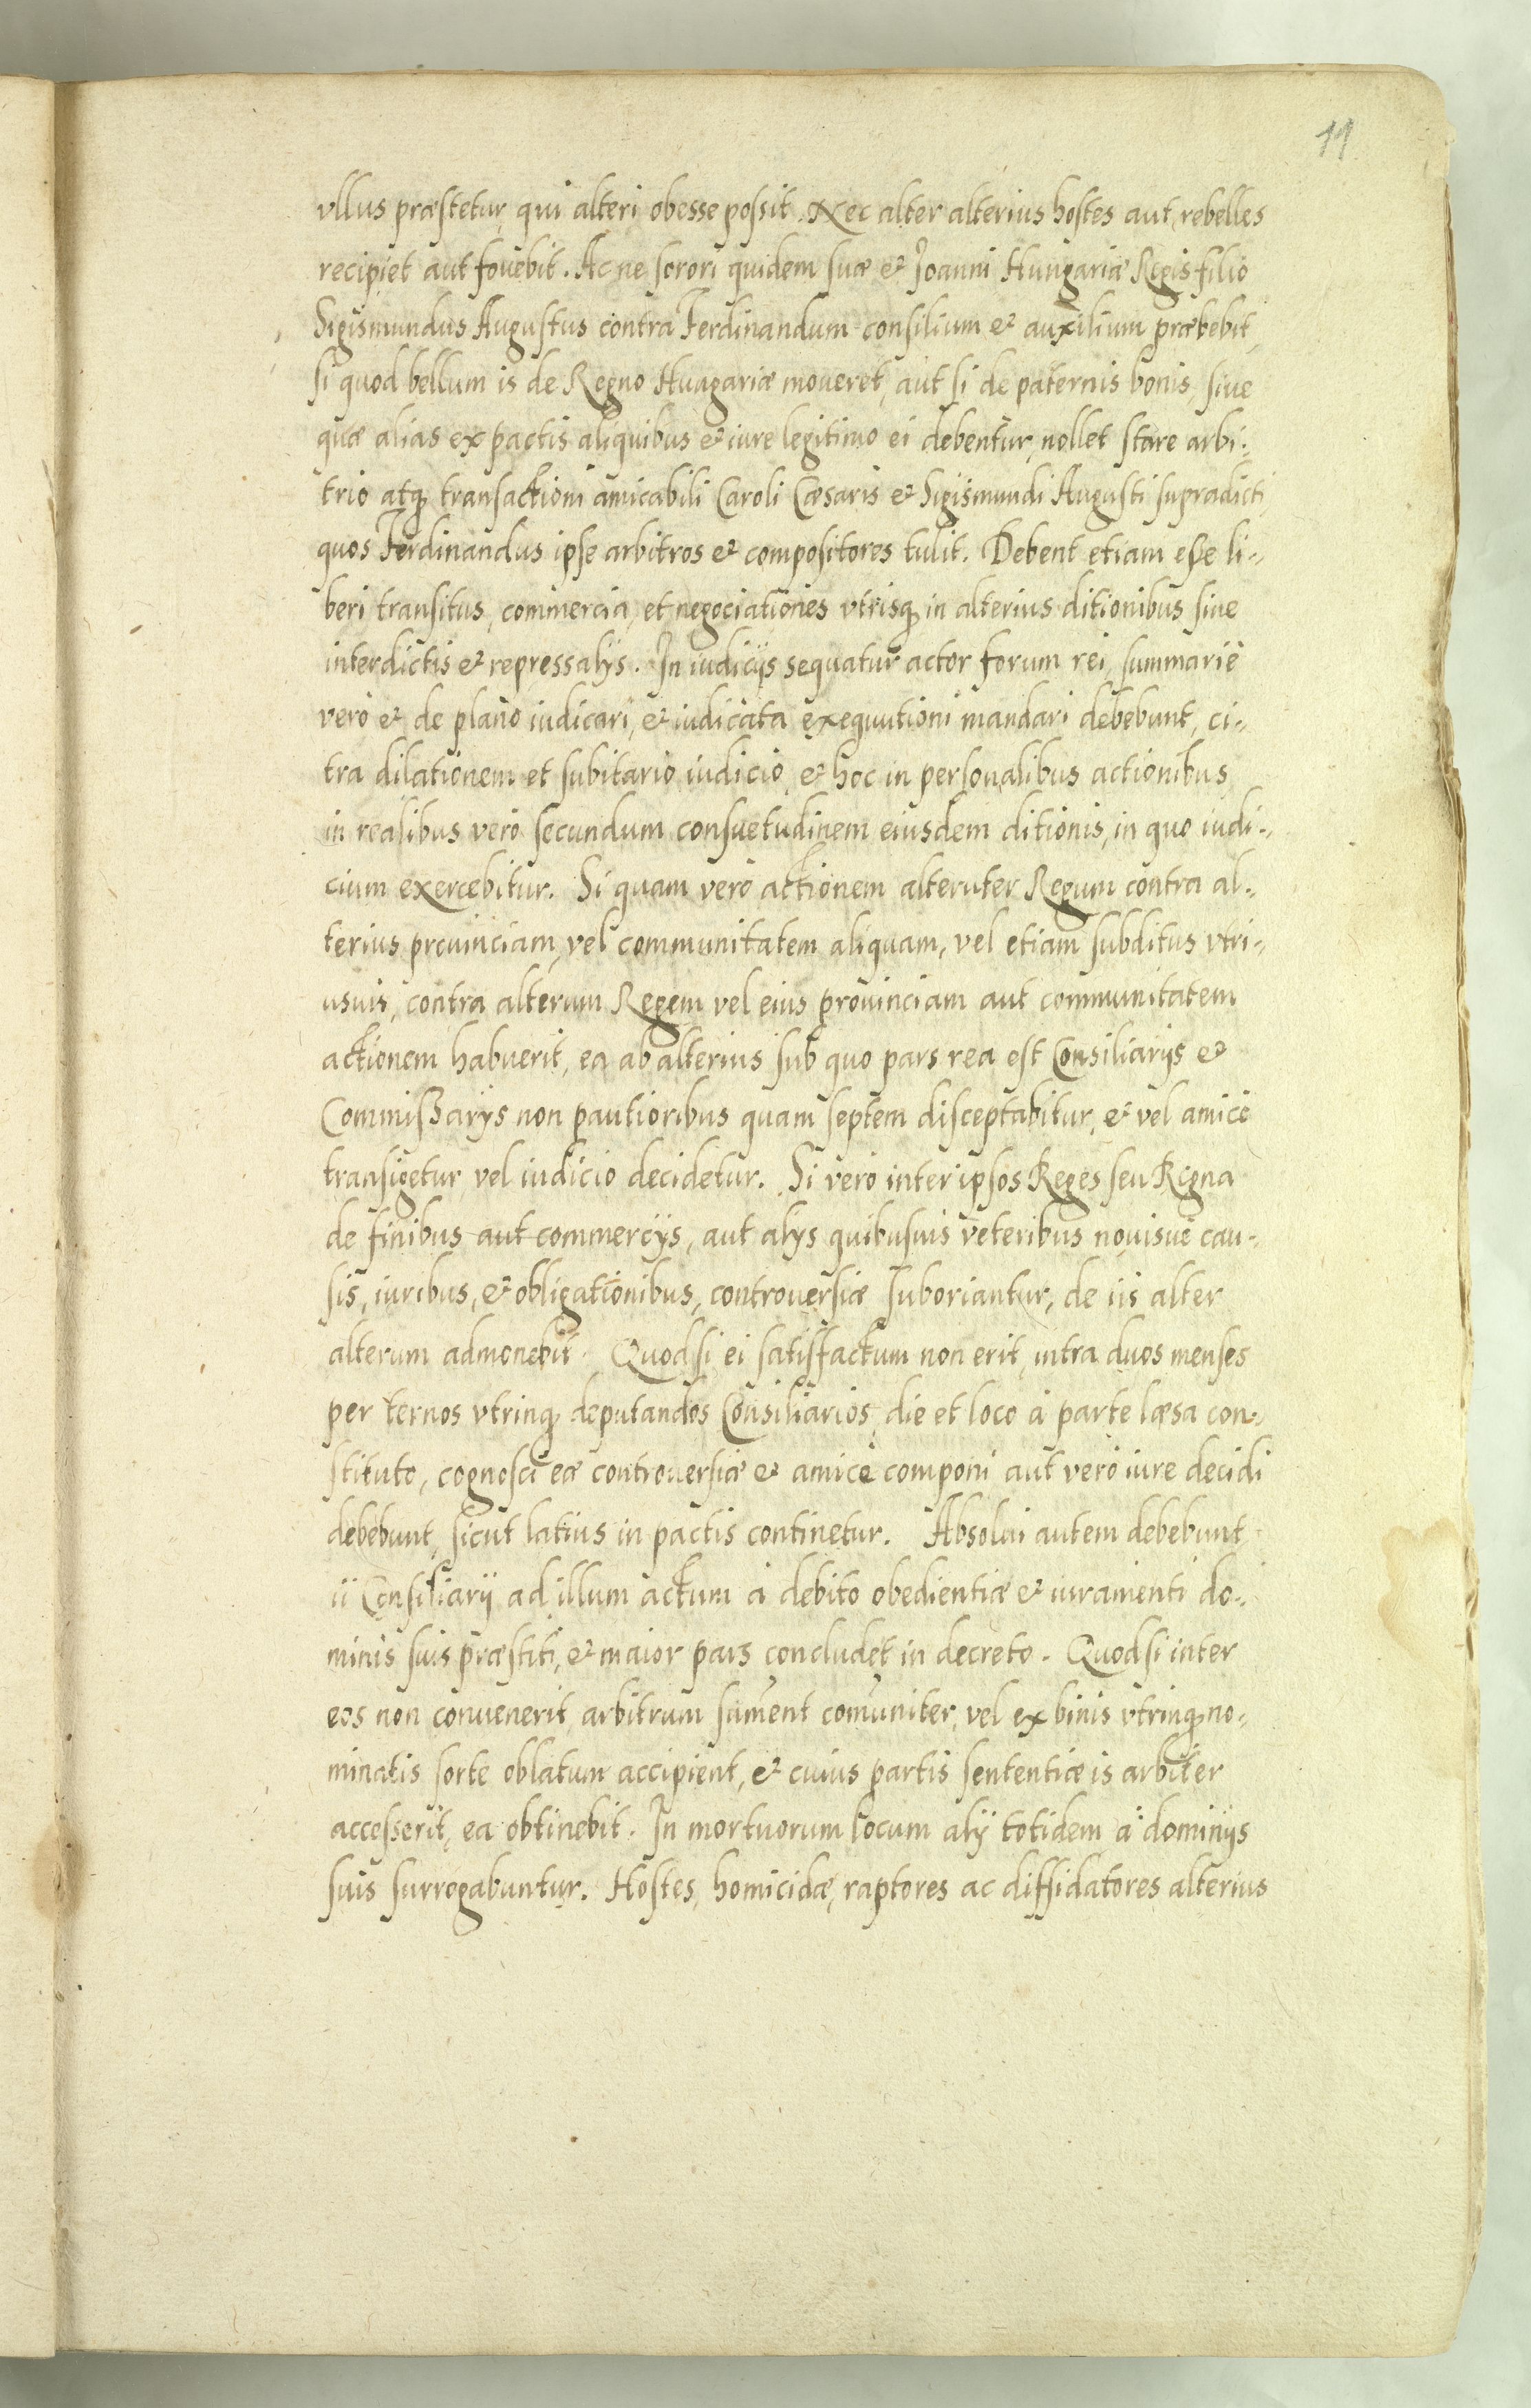 11
vllus præstetur, qui alteri obesse possit. Nec alter alterius hostes aut rebelles
recipiet aut fouebit. Ac ne sorori quidem suæ et Joanni Hungariæ Regis filio
Sigismundus Augustus contra Ferdinandum consilium et auxilium præbebit,
si quod bellum is de Regno Huagariæ moueret, aut si de paternis bonis, siue
quæ alias ex pactis aliquibus et iure legitimo ei debentur, nollet stare arbi-
trio atq transactioni amicabili Caroli Cæsaris et Sigismundi Augusti supradicti,
quos Ferdinandus ipse arbitros et compositores tulit. Debent etiam esse li-
beri transitus, commercia, et negociationes vtrisq in alterius ditionibus sine
interdictis et repressalÿs. In iudicÿs sequatur actor forum rei, summarie
vero et de plano iudicari, et iudicata exequutioni mandari debebunt, ci-
tra dilationem et subitario iudicio, et hoc in personalibus actionibus,
in realibus vero secundum consuetudinem eiusdem ditionis, in quo iudi-
cium exercebitur. Si quam vero actionem alteruter Regum contra al-
terius prouinciam, vel communitatem aliquam, vel etiam subditus vtri-
usuis, contra alterum Regem vel eius prouinciam aut communitatem
actionem habuerit, ea ab alterius sub quo pars rea est Consiliarÿs et
Commissarÿs non pautioribus quam septem disceptabitur, et vel amice
transigetur vel iudicio decidetur. Si vero inter ipsos Reges seu Regna
de finibus aut commercÿs, aut alÿs quibusuis veteribus nouisue cau-
sis, iuribus, et obligationibus, controuersiæ suboriantur, de iis alter
alterum admonebit. Quod si ei satisfactum non erit, intra duos menses
per ternos vtrinq deputandos Consiliarios, die et loco à parte læsa con-
stituto, cognosci eæ controuersiæ et amice componi aut vero iure decidi
debebunt, sicut latius in pactis continetur. Absolui autem debebunt
ii Consiliarii ad illum actum à debito obedientiæ et iuramenti do-
minis suis præstiti, et maior pars concludet in decreto. Quod si inter
eos non conuenerit, arbitrum sument comuniter, vel ex binis vtrinq no-
minatis sorte oblatum accipient, et cuius partis sententiæ is arbiter
accesserit, ea obtinebit. In mortuorum locum alÿ totidem à dominÿs
suis surrogabuntur. Hostes, homicidæ, raptores ac diffidatores alterius